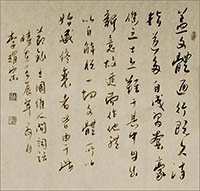 盖文體通行既久染
指遂多自成習套豪
傑之士亦難于其中自出
新意故遁而作他體
以自解脱一切文體所以
始盛終衰者皆由于此
節録王國維人間詞話
李耀宗